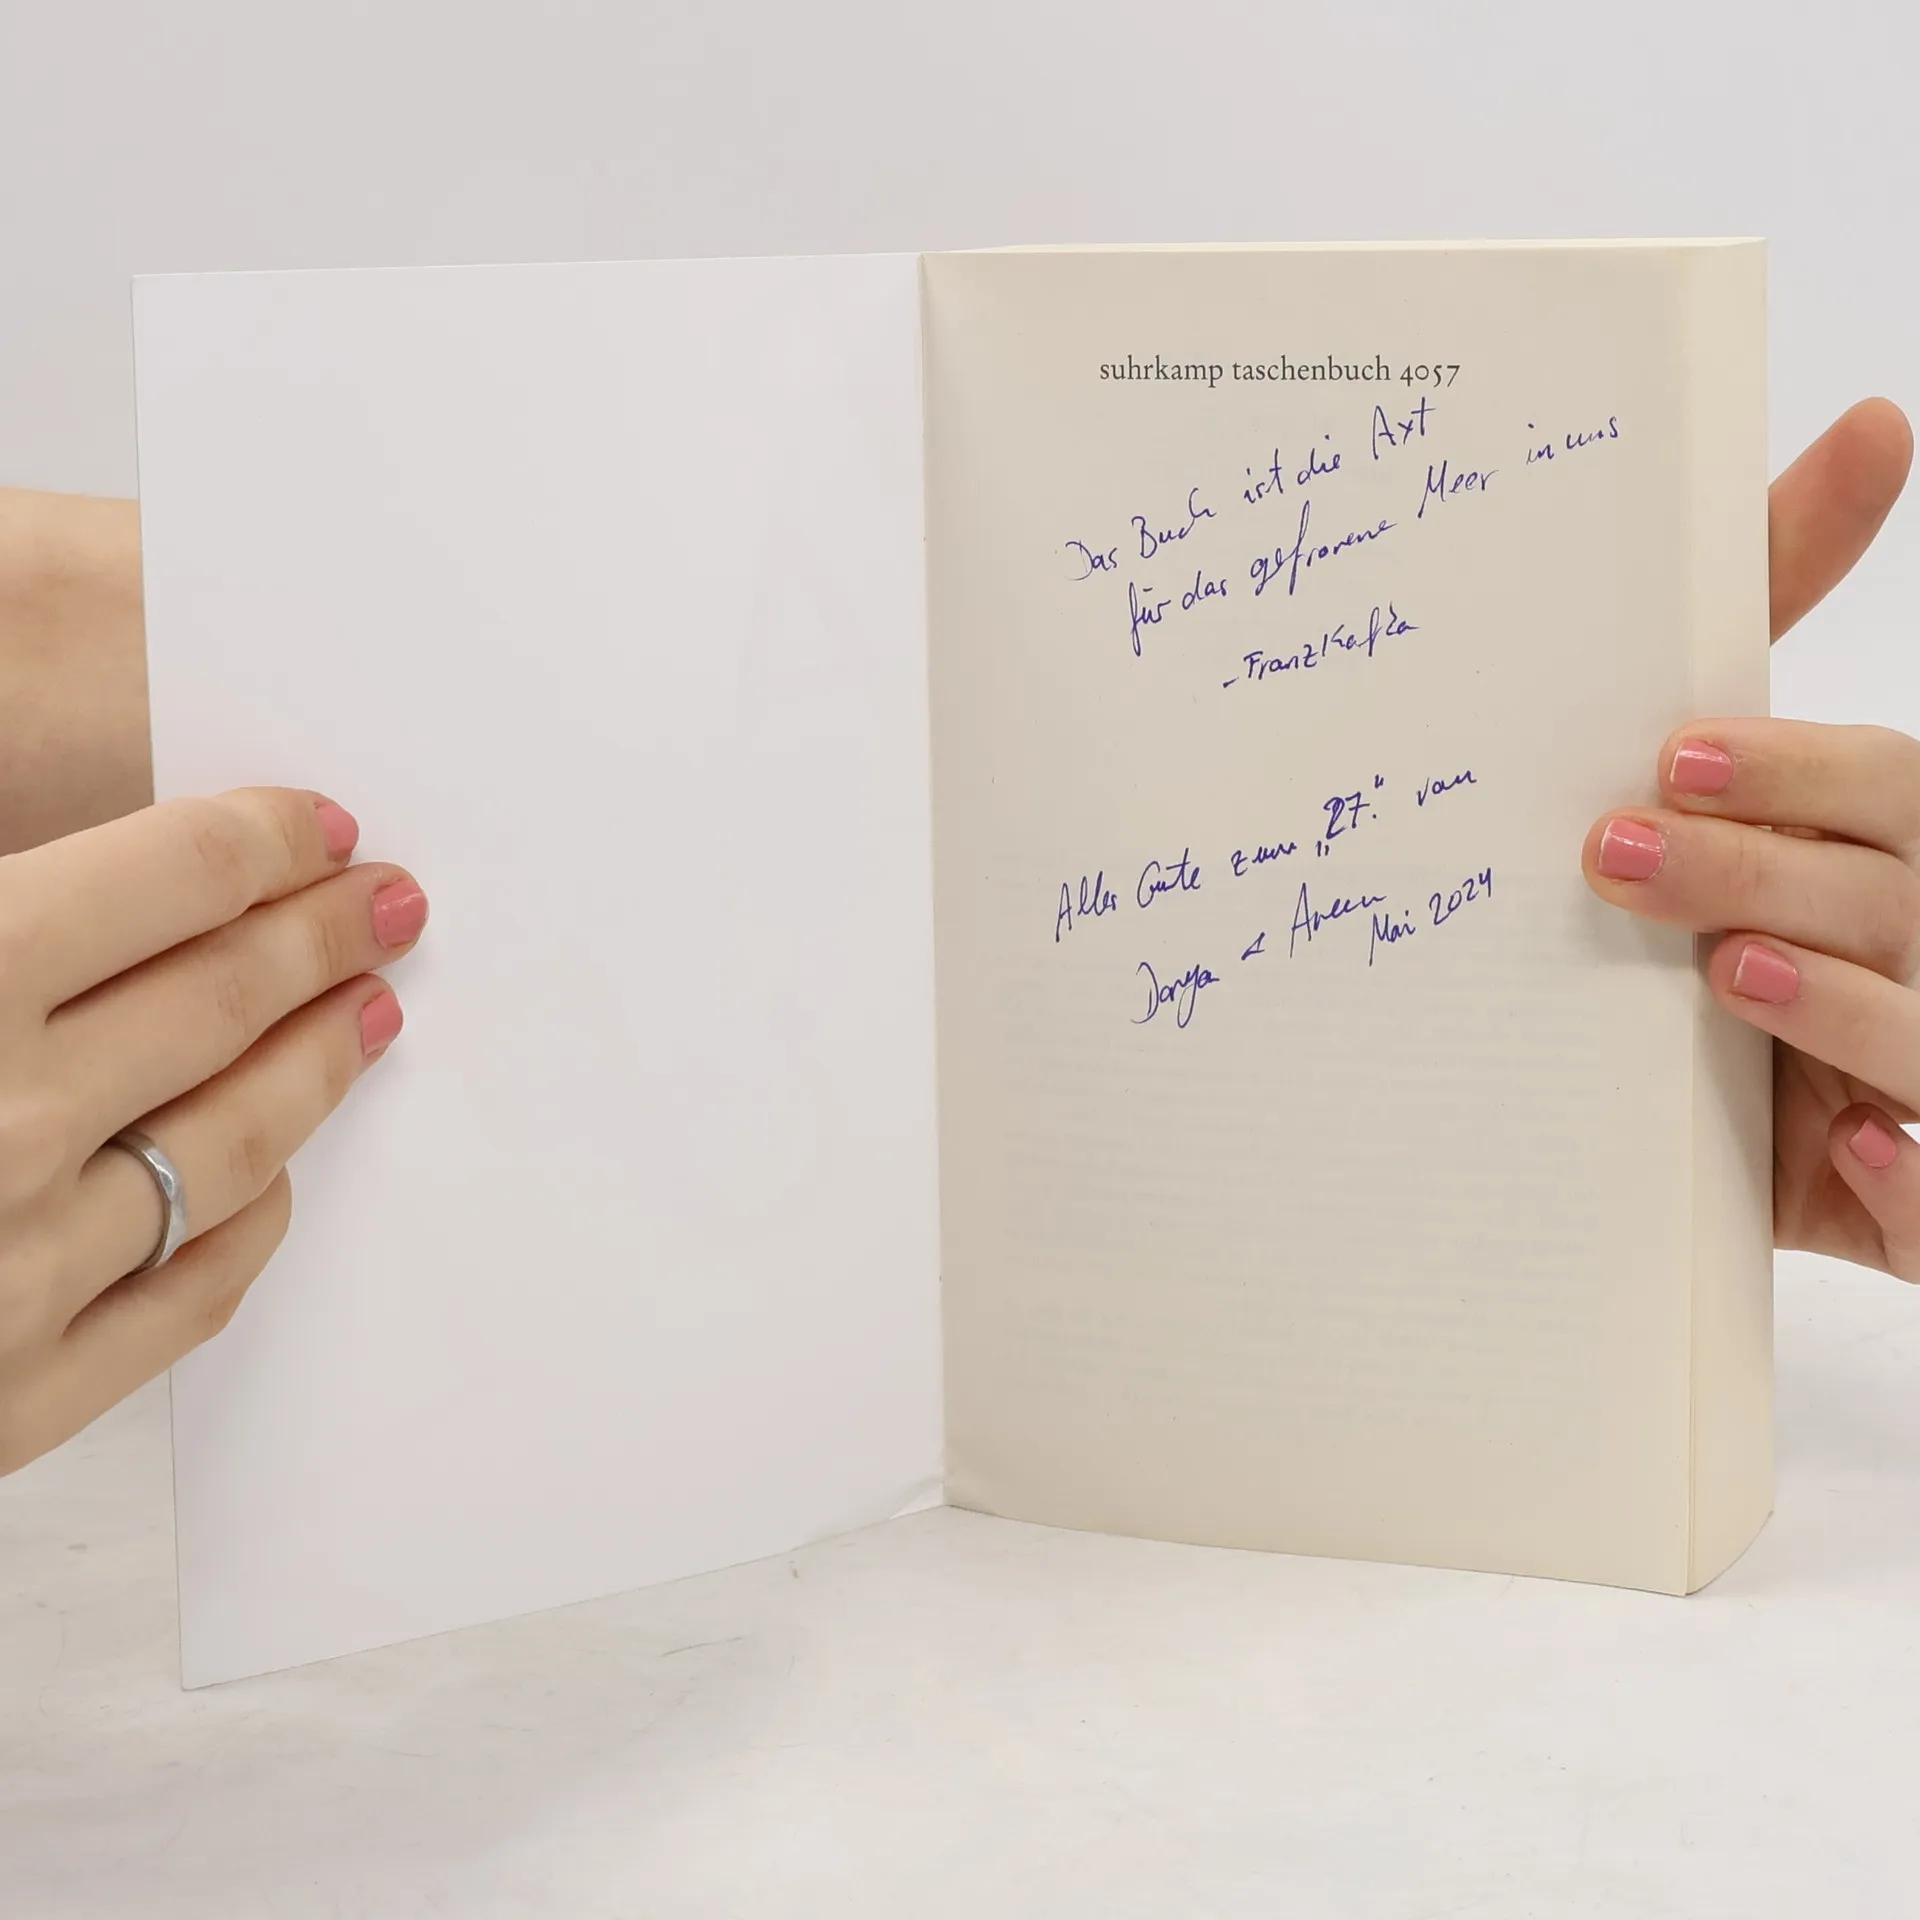 suhrkamp taschenbuch 4057
Das Buch ist die Axt
für das gefrorene Meer in uns
- Franz Kafka
Alles Gute zum „27.“ von
Dorya &
Mai 2024